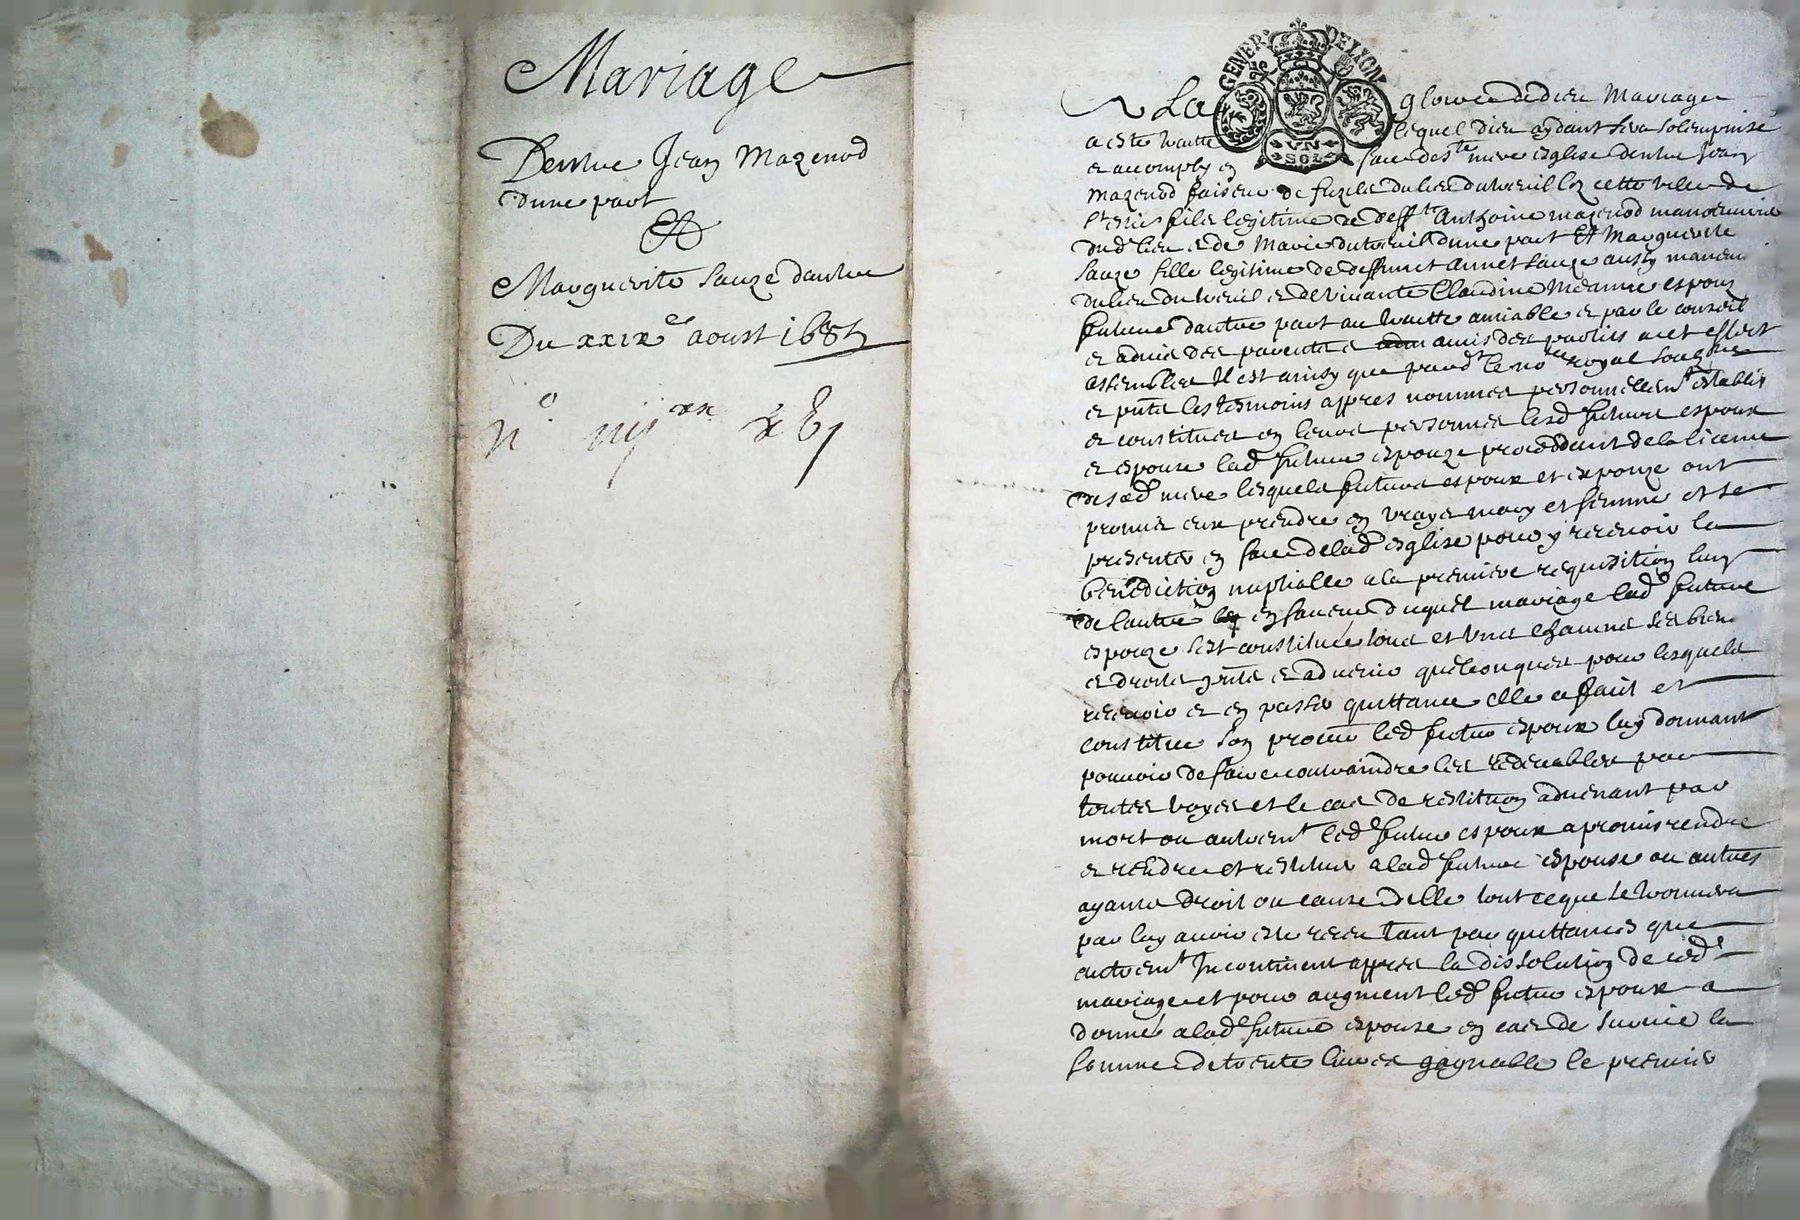 Mariage
Dentre Jean Mazenod
dune part
Et
Marguerite Sauze dautre
Du xxix^e aoust 1685
n^o iiij^xx
GENER^e DE LYON
VN
SOL
A La gloire de dieu Mariage
a este traitté lequel dieu aydant sera solempnisé
et accomply en face de s^te mere esglise dentre Jean
mazenod faiseur de fuzils du lieu du treuil lez cette ville de
s^t estie fils legitime de deff^t anthoine mazenod manoeuvre
dud^t lieu et de Marie dutreuil dune part Et Marguerite
sauze fille legitime de deffunct annet sauze aussy manoeu
du lieu du treuil et de vivante Claudine Meanne espouz
future dautre part au traitté amiable et par le conseil
et advis des parents et amis des parties a cet effect
assembles Il est ainsy que pard^t le no^re royal soub^ne
et pnts les tesmoins appres nommes personnellem^t establis
et constitues en leurs personnes lesd^t futurs espoux
et espouse lad^t future espouze proceddant de la licence
de sad^t mere lesquels futurs espoux et espouze ont
promis eux prendre en vraye mary et femme et se
presenter en face de lad^t esglise pour y recevoir la
benediction nuptialle a la premiere requisition luny
de lautre en faveur duquel mariage lad^t future
espouze sest constituée tous et uns chacuns ses biens
et droits pnts et advenir quelconques pour lesquels
recevoir et en passer quittance elle a fait et
constitue son procur led^t futur espoux luy donnant
pouvoir de faire contraindre les redevables par
toutes voyes et le cas de restituon advenant par
mort ou autrem^t led^t futur espoux a promis rendre
et rendre et restituer a lad^t future espouse ou autres
ayants droit ou cause delle tout ce que se trouvera
par luy avoir este receu tant par quittances que
autrem^t Incontinent appres la dissolution de ced^t
mariage et pour augment led^t futur espoux a
donné a lad^t future espouse en cas de survie la
somme de trente livres gagnable le premier